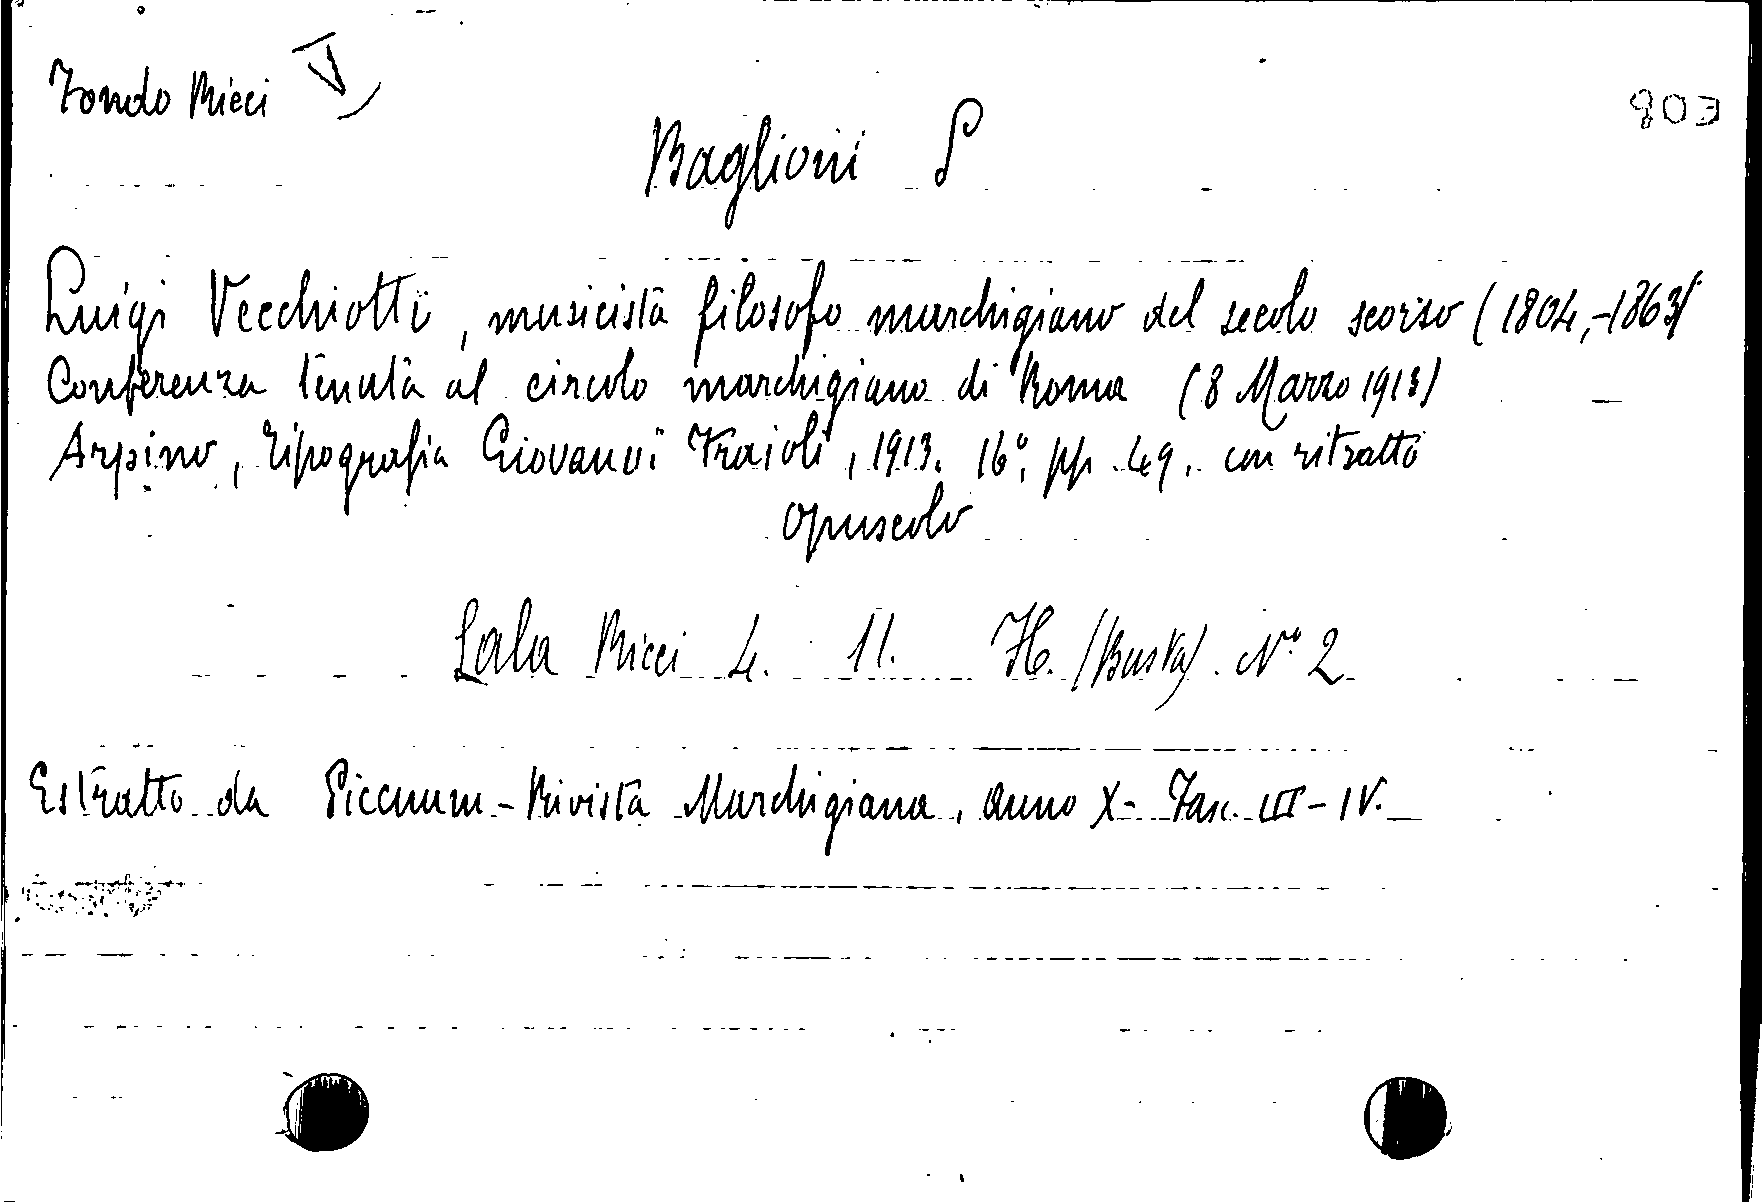 Fondo Ricci V
803
Baglioni S
Luigi Vecchiotti, musicista filosofo marchigiano del secolo scorso (1804,-1863)
Conferenza tenuta al circolo marchigiano di Roma (8 Marzo 1913)
Arpino, Tipografia Giovanni Fraioli, 1913. 16°, pp. 49. con ritratto
opuscolo
Sala Ricci 4. 11. H. (Busta) N° 2
Estratto da Picenum - Rivista Marchigiana, anno X - Fasc. III - IV.